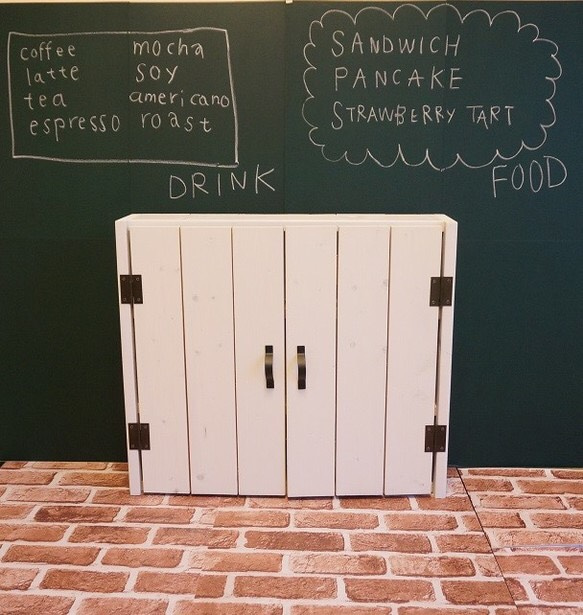 coffee mocha
latte soy
tea americano
espresso roast
DRINK
SANDWICH
PANCAKE
STRAWBERRY TART
FOOD